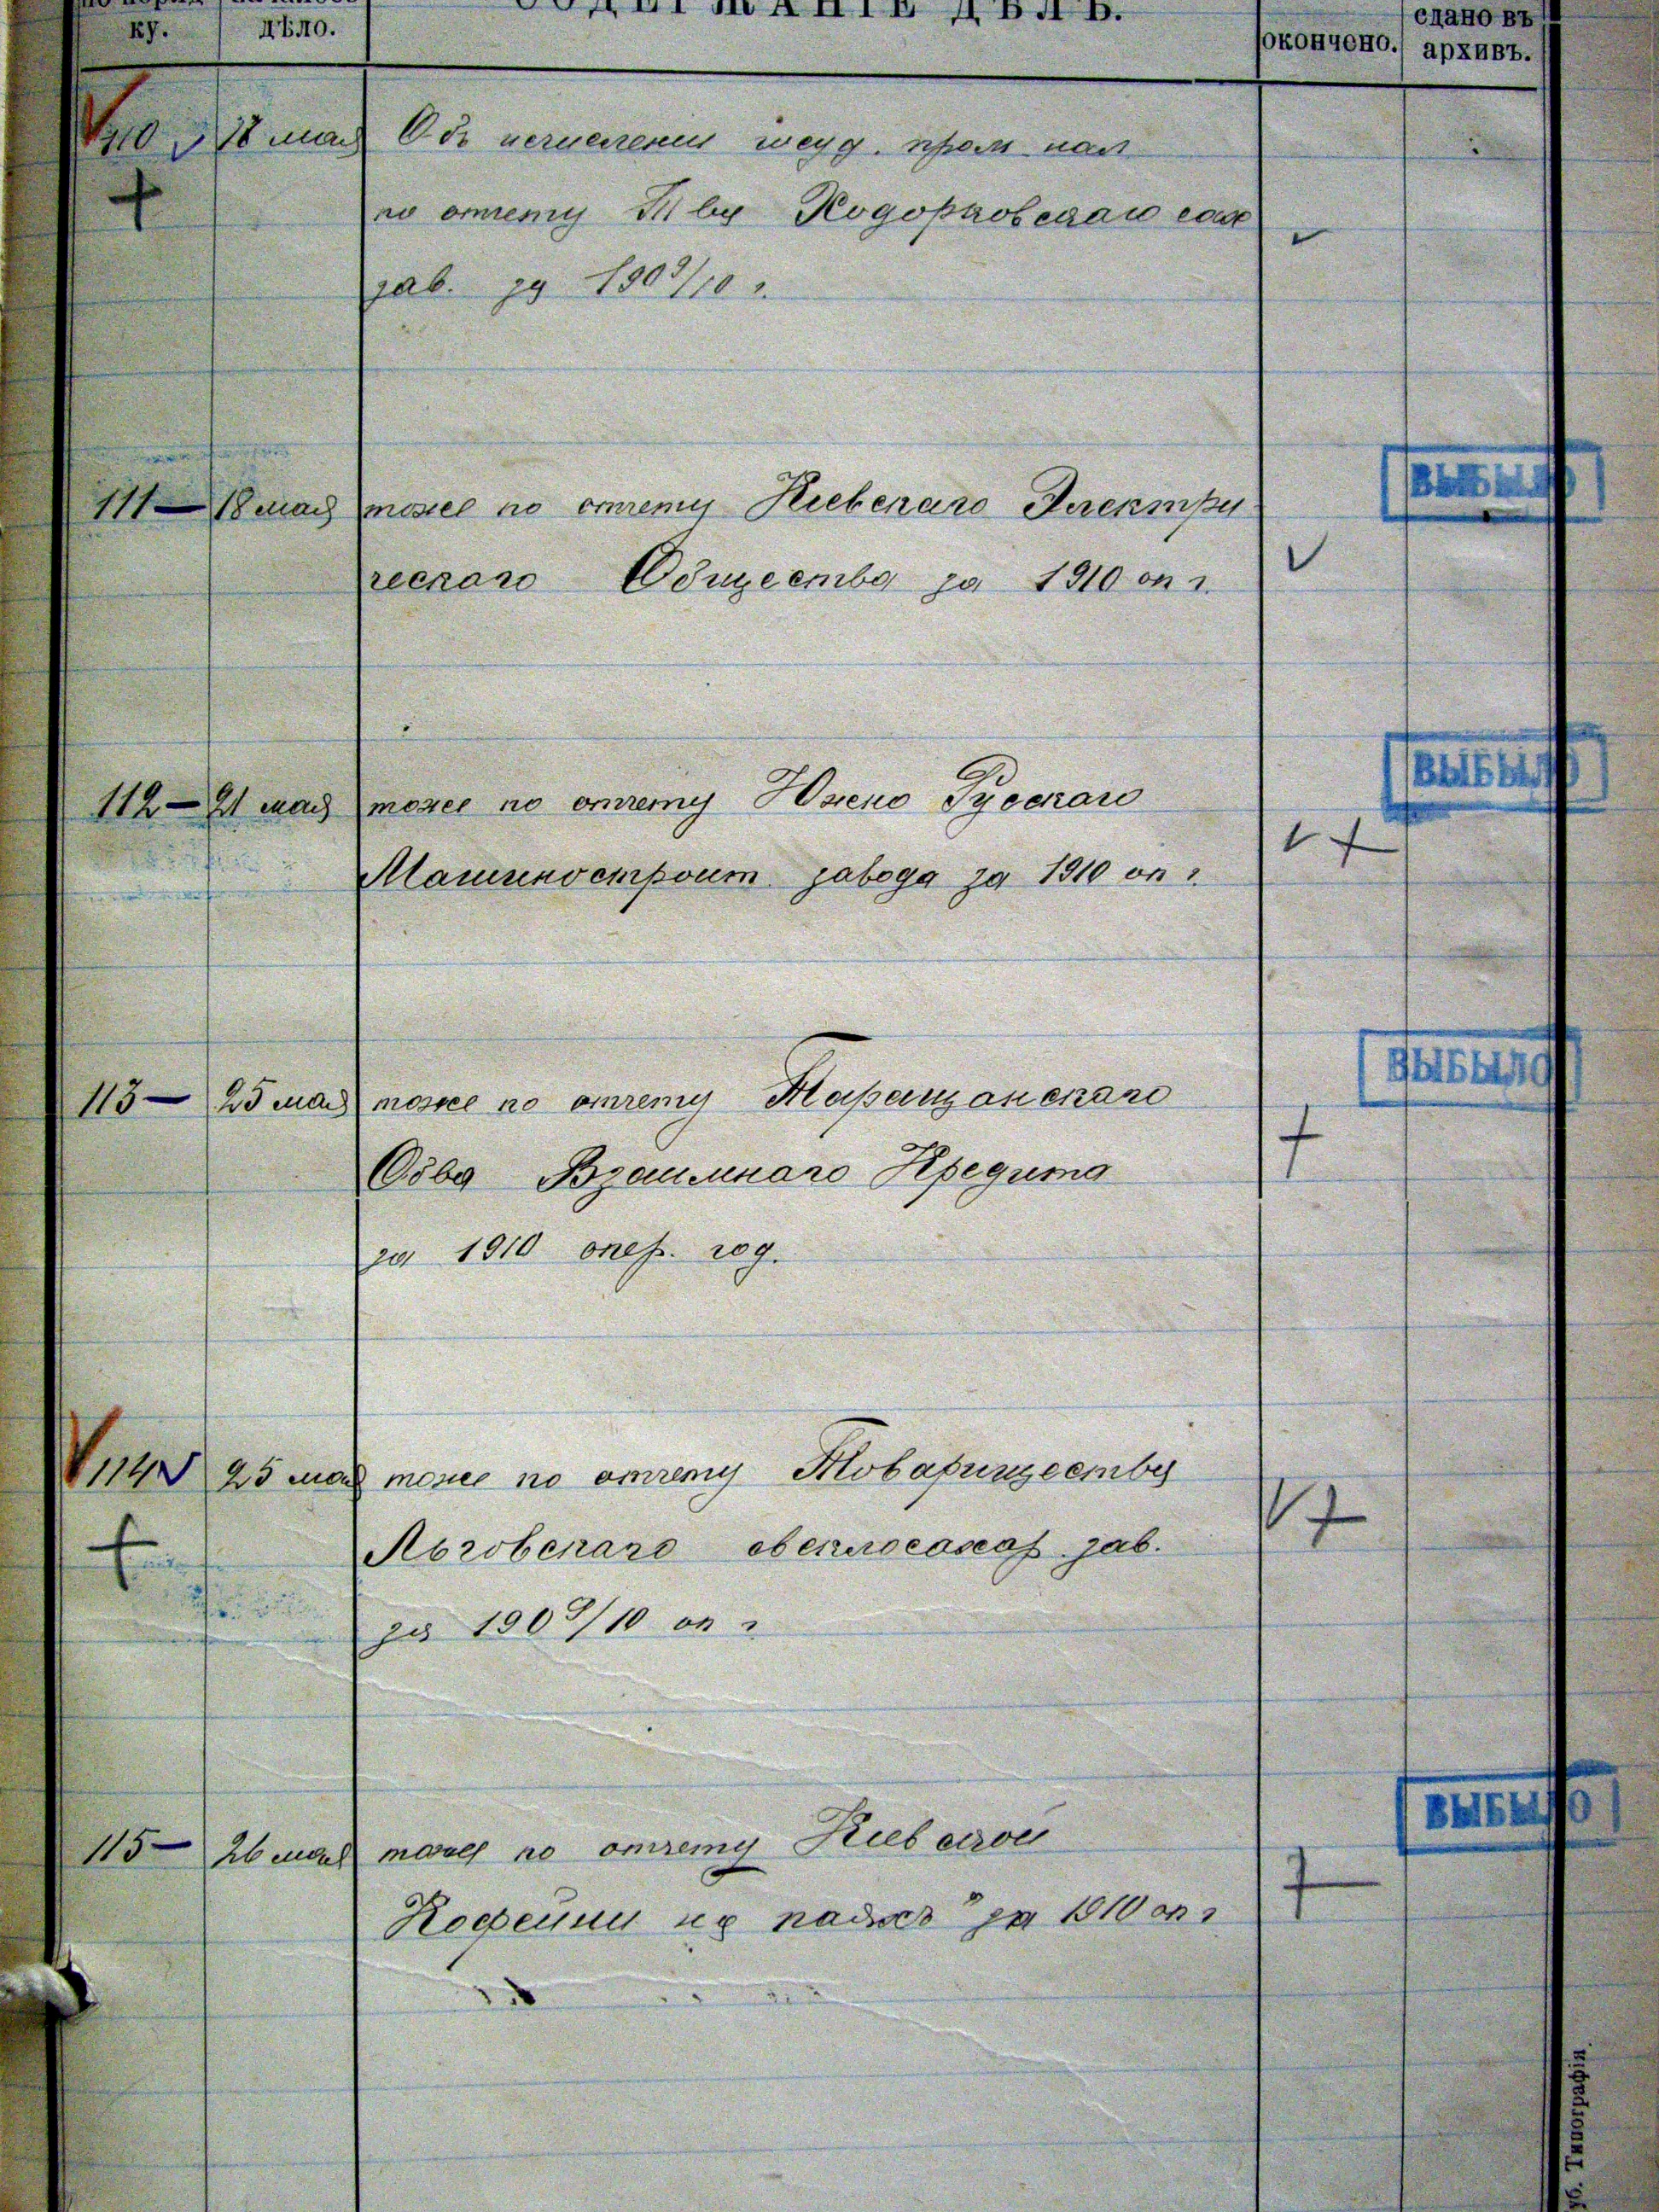 ку.
дѣло.
СОДЕРЖАНІЕ ДѢЛЪ.
окончено.
сдано въ
архивъ.
110 18 мая Объ исчисленіи госуд. пром нал
по отчету Т ва Ходорковскаго сах
зав. за 1909/10 г.
ВЫБЫЛО
111— 18 мая тоже по отчету Кіевскаго Электри
ческаго Общества за 1910 оп г.
ВЫБЫЛО
112— 21 мая тоже по отчету Южно Русскаго
Машиностроит. завода за 1910 оп г.
ВЫБЫЛО
113— 25 мая тоже по отчету Таращанскаго
Обва Взаимнаго Кредита
за 1910 опер. год.
114 25 мая тоже по отчету Товарищества
Льговскаго свеклосахар. зав.
за 1909/10 оп г
ВЫБЫЛО
115— 26 мая тоже по отчету Кіевской
Кофейни на паяхъ" за 1910 оп г
уб. Типографія.